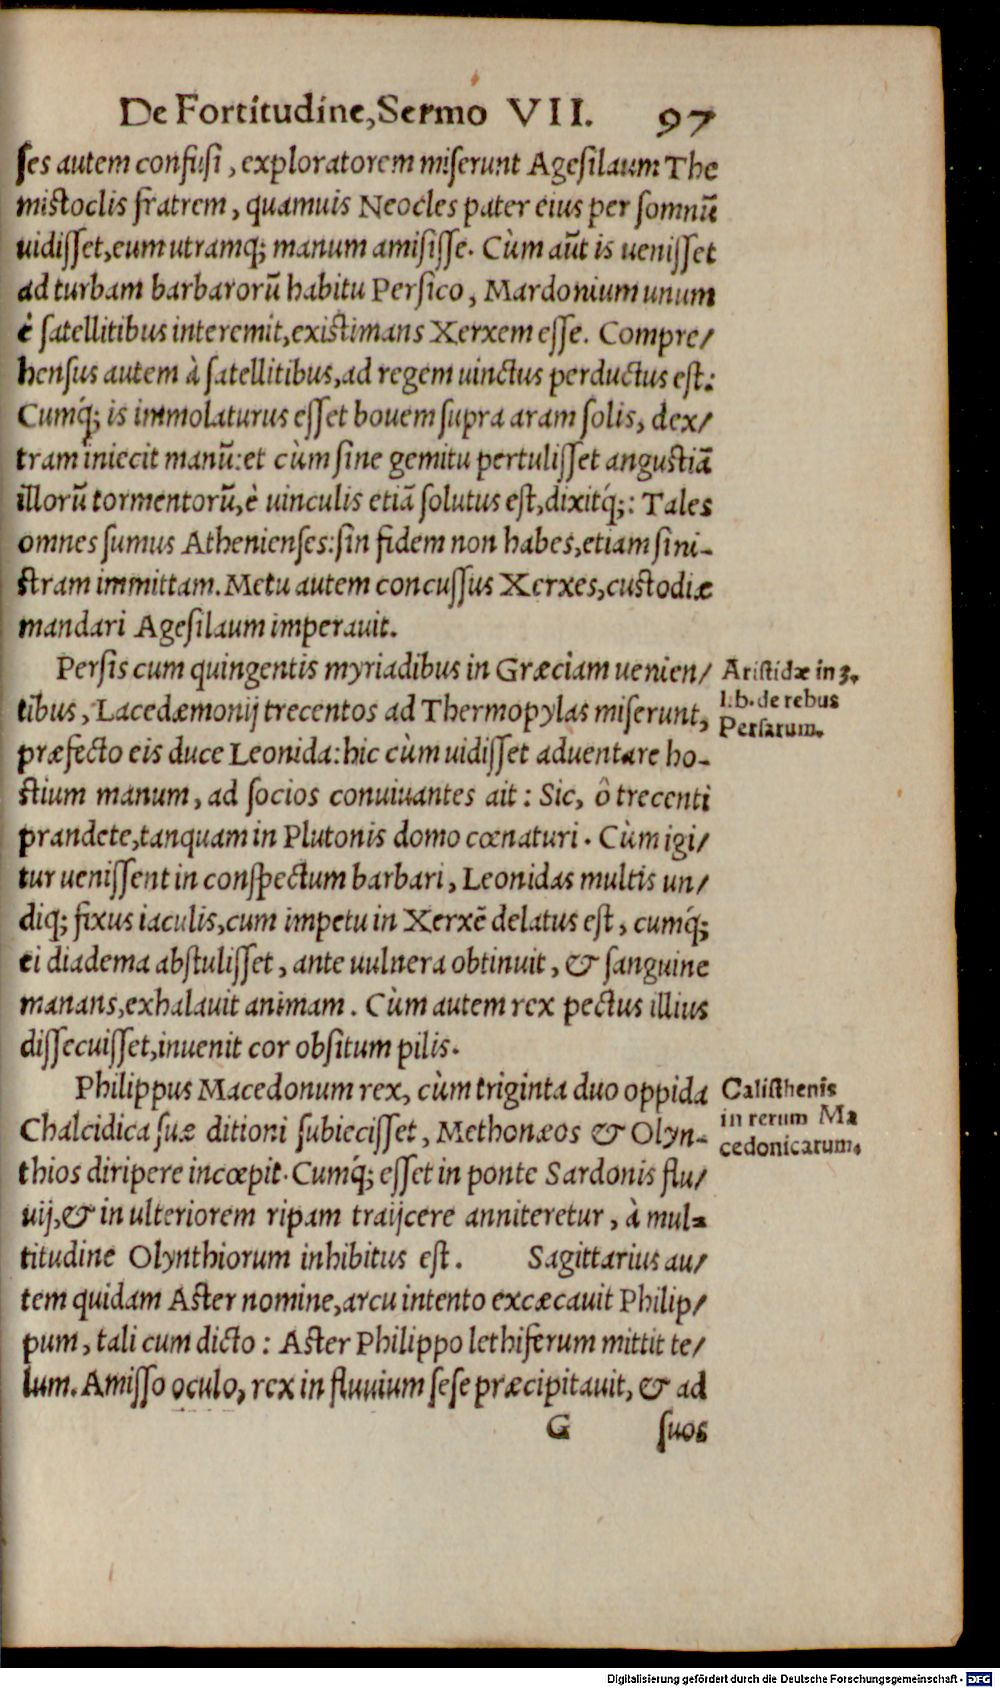 De Fortitudine, Sermo VII. 97
ses autem confusi, exploratorem miserunt Agesilaum The
mistoclis fratrem, quamuis Neocles pater eius per somnũ
uidisset, eum utramq; manum amisisse. Cùm aũt is uenisset
ad turbam barbarorũ habitu Persico, Mardonium unum
è satellitibus interemit, existimans Xerxem esse. Compre/
hensus autem à satellitibus, ad regem uinctus perductus est:
Cumq́; is immolaturus esset bouem supra aram solis, dex/
tram iniecit manũ: et cùm sine gemitu pertulisset angustiã
illorũ tormentorũ, è uinculis etiã solutus est, dixitq́;: Tales
omnes sumus Athenienses: sin fidem non habes, etiam sini-
stram immittam. Metu autem concussus Xerxes, custodiæ
mandari Agesilaum imperauit.
Persis cum quingentis myriadibus in Græciam uenien/
tibus, Lacedæmonij trecentos ad Thermopylas miserunt,
præfecto eis duce Leonida: hic cùm uidisset aduentare ho-
stium manum, ad socios conuiuantes ait: Sic, ô trecenti
prandete, tanquam in Plutonis domo cœnaturi. Cùm igi/
tur uenissent in conspectum barbari, Leonidas multis un/
diq; fixus iaculis, cum impetu in Xerxẽ delatus est, cumq́;
ei diadema abstulisset, ante uulnera obtinuit, & sanguine
manans, exhalauit animam. Cùm autem rex pectus illius
dissecuisset, inuenit cor obsitum pilis.
Aristidæ in 3.
lib. de rebus
Persarum.
Philippus Macedonum rex, cùm triginta duo oppida
Chalcidica suæ ditioni subiecisset, Methonæos & Olyn-
thios diripere incœpit. Cumq́; esset in ponte Sardonis flu/
uij, & in ulteriorem ripam traijcere anniteretur, à mul-
titudine Olynthiorum inhibitus est. Sagittarius au/
tem quidam Aster nomine, arcu intento excæcauit Philip/
pum, tali cum dicto: Aster Philippo lethiferum mittit te/
lum. Amisso oculo, rex in fluuium sese præcipitauit, & ad
Calisthenis
in rerum Ma
cedonicarum.
G suos
Digitalisierung gefördert durch die Deutsche Forschungsgemeinschaft - DFG